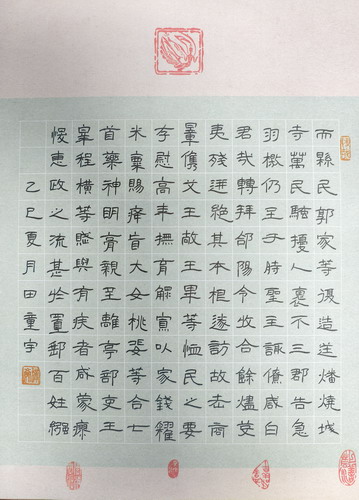 而縣民郭家等復造逆燔燒城
寺萬民騷擾人裹不三郡告急
羽檄仍至于時聖主諏僚咸曰
君哉轉拜郃陽令收合餘燼芟
夷殘迸絕其本根遂訪故老商
量儁艾王敞王畢等恤民之要
存慰高年撫育鰥寡以家錢糴
米粟賜癃盲大女桃婓等合七
首藥神明膏親至離亭部吏王
皋程橫等賦與有疾者咸蒙瘳
悛惠政之流甚於置郵百姓繈
乙巳夏月田童宇